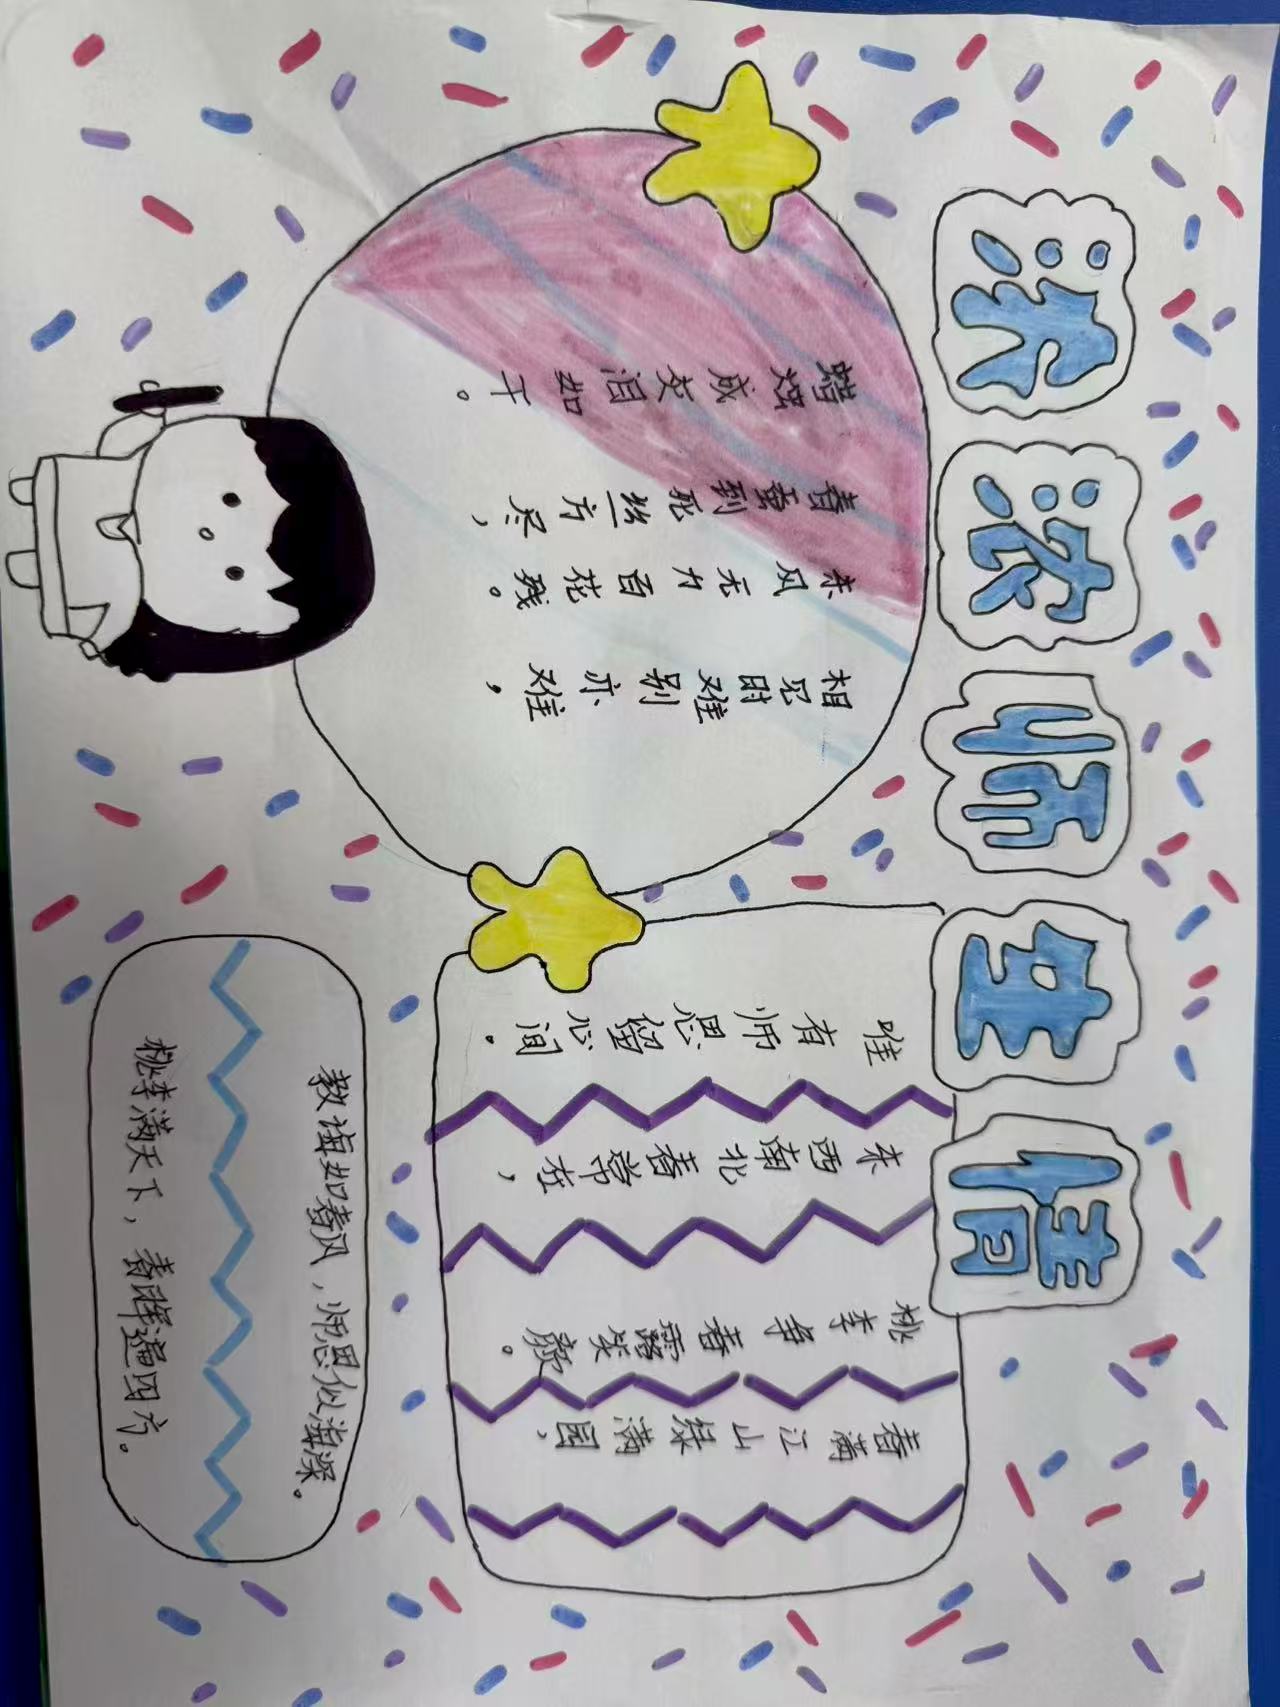 浓浓师生情
相见时难别亦难，
东风无力百花残。
春蚕到死丝方尽，
蜡烛成灰泪如干。
春满江山绿满园，
桃李争春露笑颜。
东西南北春常在，
唯有师恩留心间。
教诲如春风，师恩似海深。
桃李满天下，春晖遍四方。